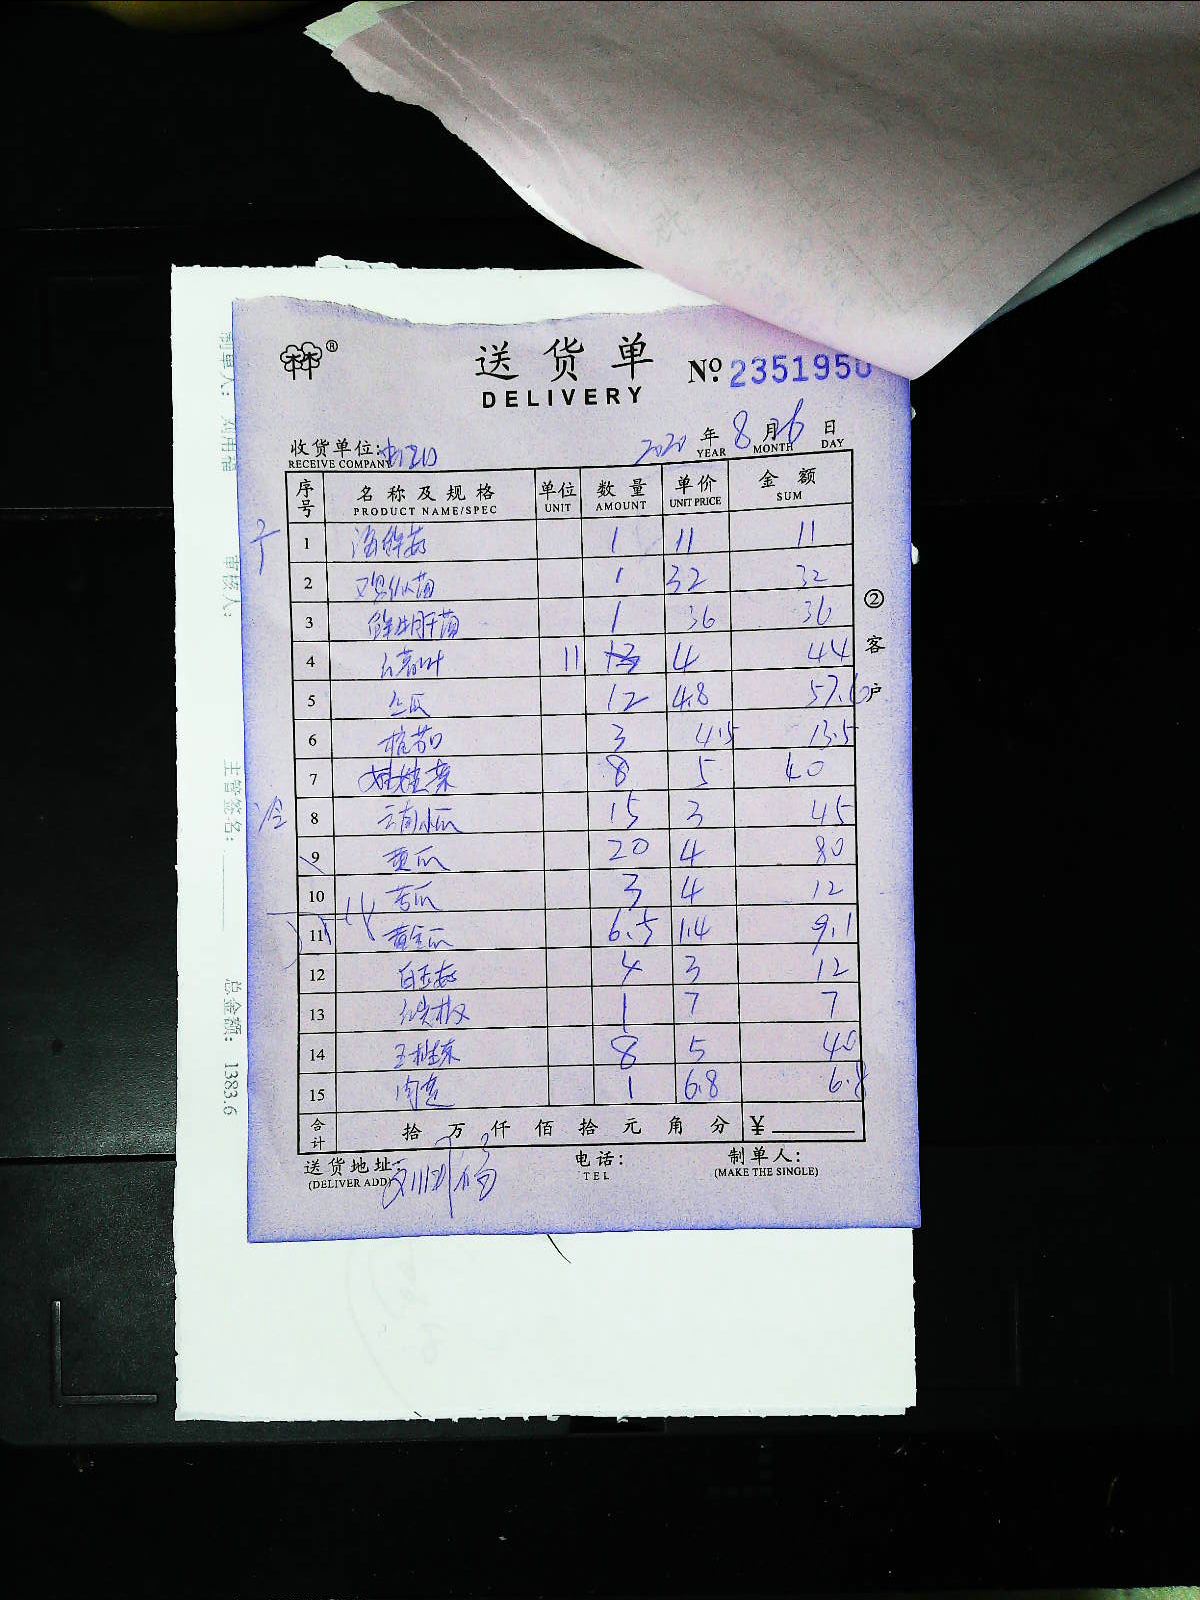 送货单
DELIVERY
№ 2351950
收货单位:
RECEIVE COMPANY
2020 年 8 月 6 日
YEAR MONTH DAY
序号 名称及规格 单位 数量 单价 金额
PRODUCT NAME/SPEC UNIT AMOUNT UNIT PRICE SUM
1 海鲜菇 1 11 11
2 鸡枞菌 1 32 32
3 鲜牛肝菌 1 36 36
4 红苕叶 11 4 44
5 12 4.8 57.6
6 3 4.5 13.5
7 娃娃菜 8 5 40
8 云南小瓜 15 3 45
9 黄瓜 20 4 80
10 苦瓜 3 4 12
11 黄金瓜 6.5 1.4 9.1
12 白玉菇 4 3 12
13 红尖椒 1 7 7
14 8 5 40
15 1 6.8 6.8
合计 拾 万 仟 佰 拾 元 角 分 ¥
送货地址:
(DELIVER ADD)
电话:
TEL
制单人:
(MAKE THE SINGLE)
②客户
制单人: 刘用福
审核人:
主管签名:
总金额: 1383.6